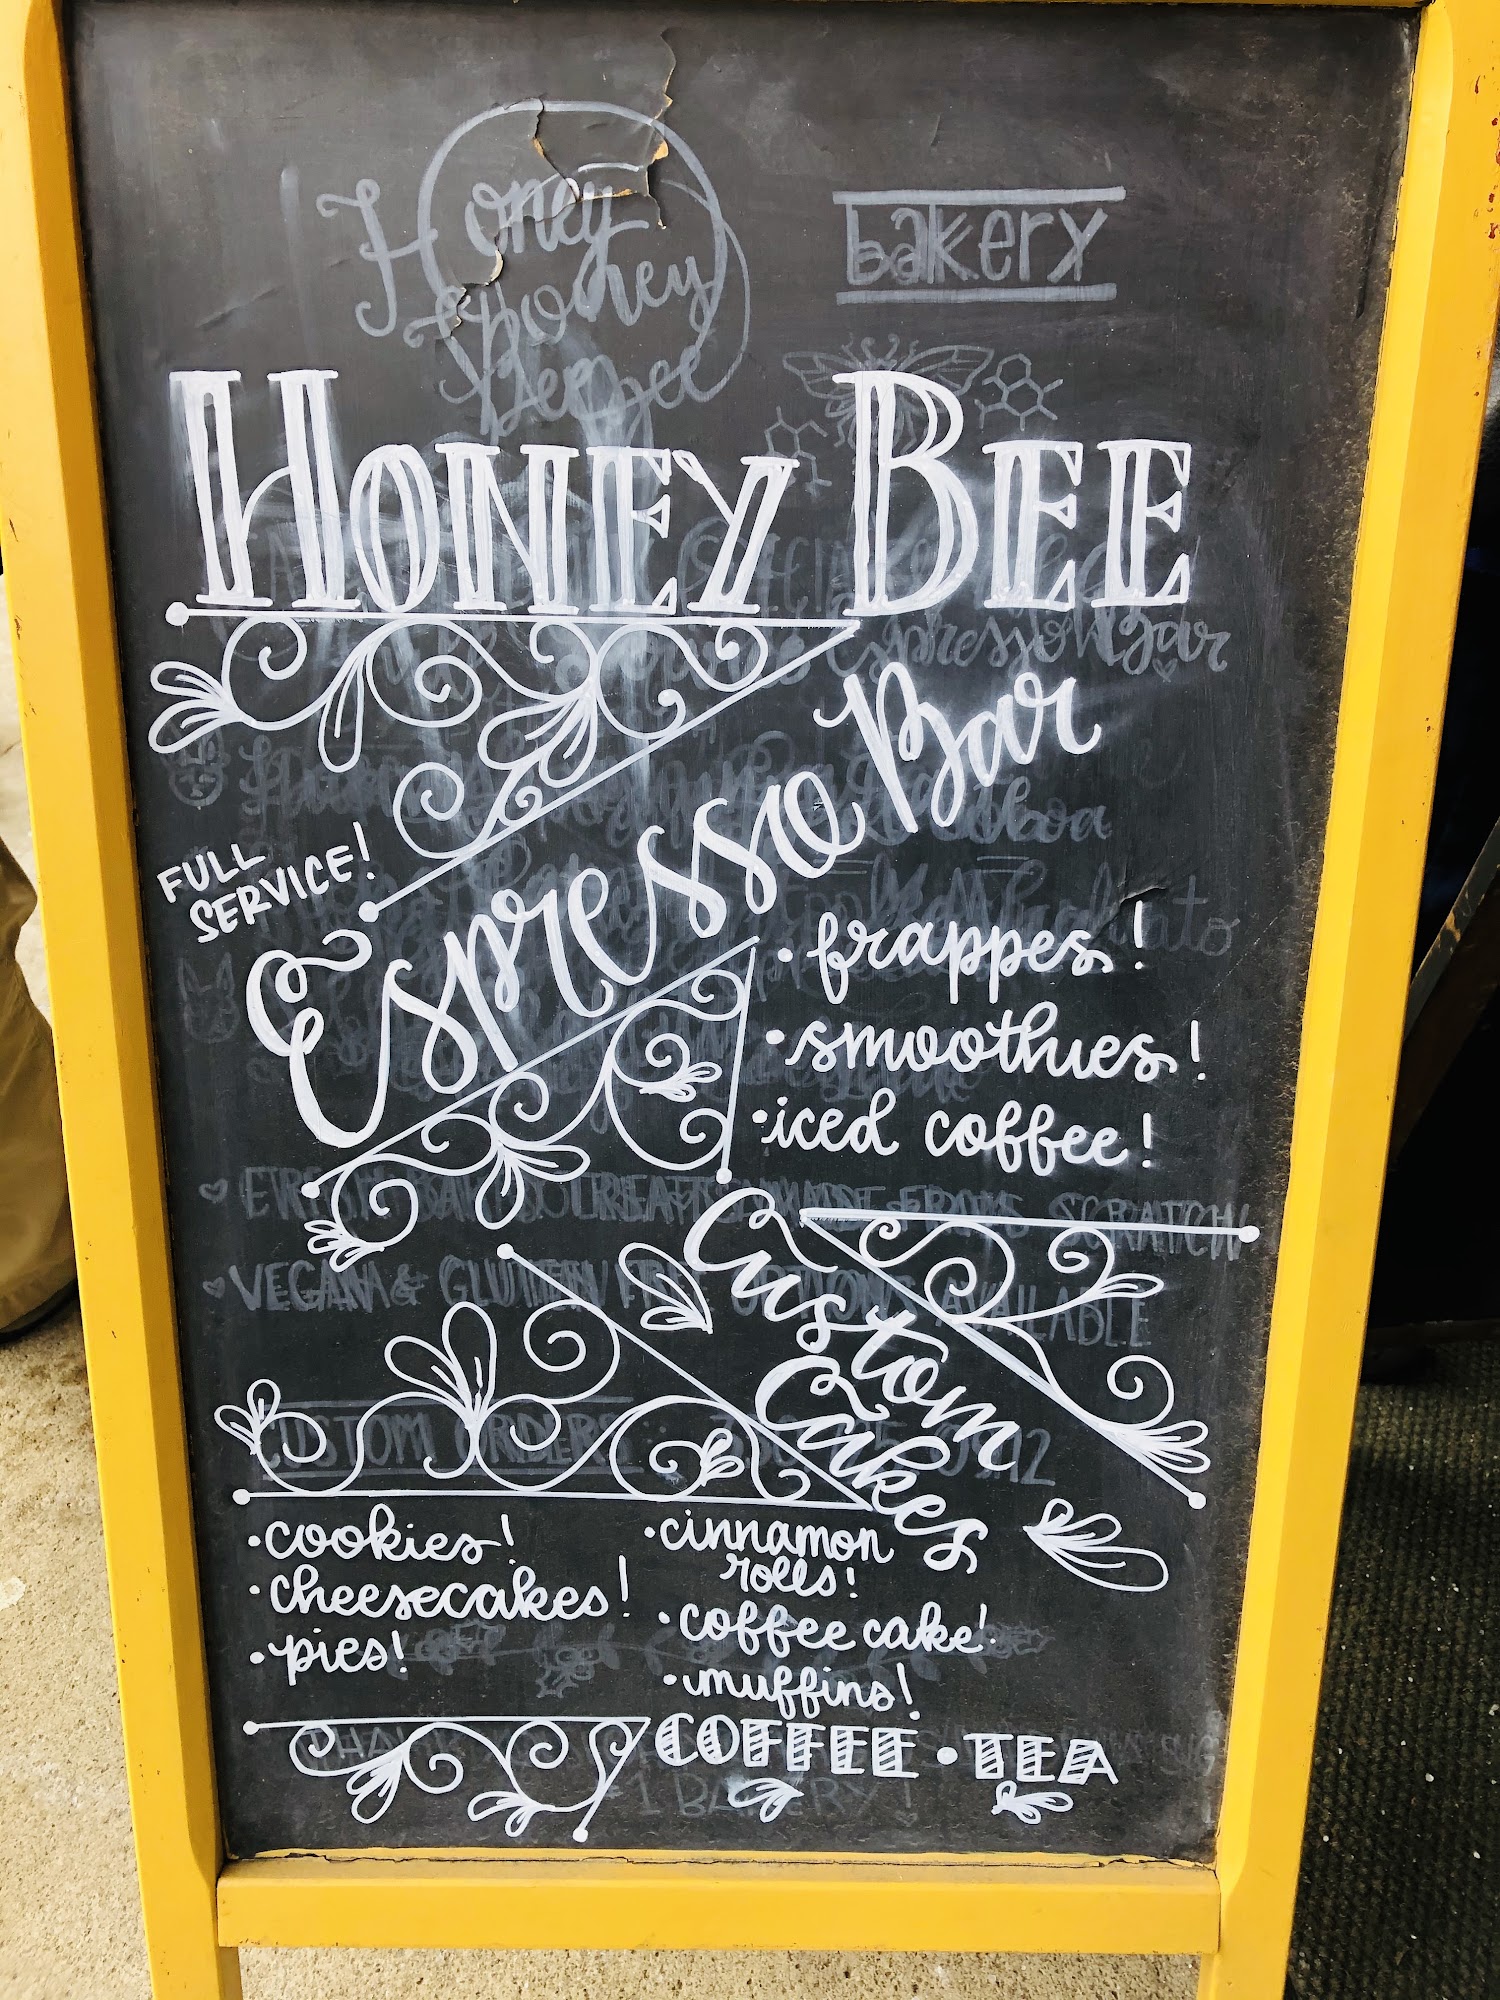 Honey
Honey
Bee
Bee
bakery
HONEY BEE
Espresso Bar
FULL
SERVICE!
Espresso Bar
• frappes!
• smoothies!
• iced coffee!
TREATS MADE FROM SCRATCH
VEGAN & GLUTEN FREE OPTIONS AVAILABLE
Custom
Cakes
CUSTOM ORDERS
• cookies!
• cheesecakes!
• pies!
• cinnamon
rolls!
• coffee cake!
• muffins!
COFFEE • TEA
BAKERY!